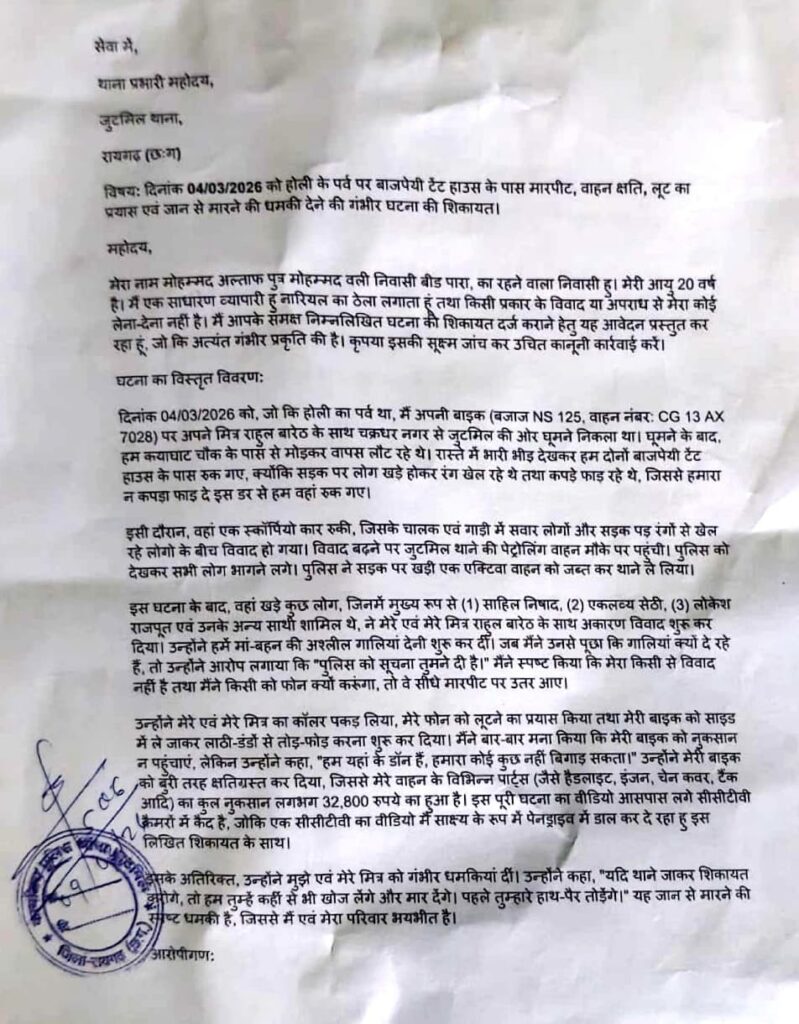 सेवा में,
थाना प्रभारी महोदय,
जुटमिल थाना,
रायगढ़ (छ:ग)
विषय: दिनांक 04/03/2026 को होली के पर्व पर बाजपेयी टेंट हाउस के पास मारपीट, वाहन क्षति, लूट का
प्रयास एवं जान से मारने की धमकी देने की गंभीर घटना की शिकायत।
महोदय,
मेरा नाम मोहम्मद अल्ताफ पुत्र मोहम्मद वली निवासी बीड पारा, का रहने वाला निवासी हु। मेरी आयु 20 वर्ष
है। मैं एक साधारण व्यापारी हु नारियल का ठेला लगाता हूं तथा किसी प्रकार के विवाद या अपराध से मेरा कोई
लेना-देना नहीं है। मैं आपके समक्ष निम्नलिखित घटना की शिकायत दर्ज कराने हेतु यह आवेदन प्रस्तुत कर
रहा हूं, जो कि अत्यंत गंभीर प्रकृति की है। कृपया इसकी सूक्ष्म जांच कर उचित कानूनी कार्रवाई करें।
घटना का विस्तृत विवरण:
दिनांक 04/03/2026 को, जो कि होली का पर्व था, मैं अपनी बाइक (बजाज NS 125, वाहन नंबर: CG 13 AX
7028) पर अपने मित्र राहुल बारेठ के साथ चक्रधर नगर से जुटमिल की ओर घूमने निकला था। घूमने के बाद,
हम कयाघाट चौक के पास से मोड़कर वापस लौट रहे थे। रास्ते में भारी भीड़ देखकर हम दोनों बाजपेयी टेंट
हाउस के पास रुक गए, क्योंकि सड़क पर लोग खड़े होकर रंग खेल रहे थे तथा कपड़े फाड़ रहे थे, जिससे हमारा
न कपड़ा फाड़ दे इस डर से हम वहां रुक गए।
इसी दौरान, वहां एक स्कॉर्पियो कार रुकी, जिसके चालक एवं गाड़ी में सवार लोगों और सड़क पड़ रंगों से खेल
रहे लोगो के बीच विवाद हो गया। विवाद बढ़ने पर जुटमिल थाने की पेट्रोलिंग वाहन मौके पर पहुंची। पुलिस को
देखकर सभी लोग भागने लगे। पुलिस ने सड़क पर खड़ी एक एक्टिवा वाहन को जब्त कर थाने ले लिया।
इस घटना के बाद, वहां खड़े कुछ लोग, जिनमें मुख्य रूप से (1) साहिल निषाद, (2) एकलव्य सेठी, (3) लोकेश
राजपूत एवं उनके अन्य साथी शामिल थे, ने मेरे एवं मेरे मित्र राहुल बारेठ के साथ अकारण विवाद शुरू कर
दिया। उन्होंने हमें मां-बहन की अश्लील गालियां देनी शुरू कर दीं। जब मैंने उनसे पूछा कि गालियां क्यों दे रहे
हैं, तो उन्होंने आरोप लगाया कि "पुलिस को सूचना तुमने दी है।" मैंने स्पष्ट किया कि मेरा किसी से विवाद
नहीं है तथा मैंने किसी को फोन क्यों करूंगा, तो वे सीधे मारपीट पर उतर आए।
उन्होंने मेरे एवं मेरे मित्र का कॉलर पकड़ लिया, मेरे फोन को लूटने का प्रयास किया तथा मेरी बाइक को साइड
में ले जाकर लाठी-डंडों से तोड़-फोड़ करना शुरू कर दिया। मैंने बार-बार मना किया कि मेरी बाइक को नुकसान
न पहुंचाएं, लेकिन उन्होंने कहा, "हम यहां के डॉन हैं, हमारा कोई कुछ नहीं बिगाड़ सकता।" उन्होंने मेरी बाइक
को बुरी तरह क्षतिग्रस्त कर दिया, जिससे मेरे वाहन के विभिन्न पार्ट्स (जैसे हैडलाइट, इंजन, चेन कवर, टैंक
आदि) का कुल नुकसान लगभग 32,800 रुपये का हुआ है। इस पूरी घटना का वीडियो आसपास लगे सीसीटीवी
कैमरों में कैद है, जोकि एक सीसीटीवी का वीडियो मैं साक्ष्य के रूप में पेनड्राइव में डाल कर दे रहा हु इस
लिखित शिकायत के साथ।
इसके अतिरिक्त, उन्होंने मुझे एवं मेरे मित्र को गंभीर धमकियां दीं। उन्होंने कहा, "यदि थाने जाकर शिकायत
करोगे, तो हम तुम्हें कहीं से भी खोज लेंगे और मार देंगे। पहले तुम्हारे हाथ-पैर तोड़ेंगे।" यह जान से मारने की
स्पष्ट धमकी है, जिससे मैं एवं मेरा परिवार भयभीत है।
आरोपीगण:
जिला-रायगढ़ (छ.ग.)